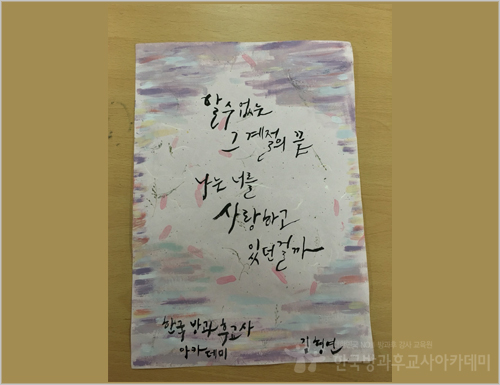 알수없는
그 계절의 끝
나는 너를
사랑하고
있던걸까
한국 방과후교사
아카데미
김형연
한국방과후교사아카데미